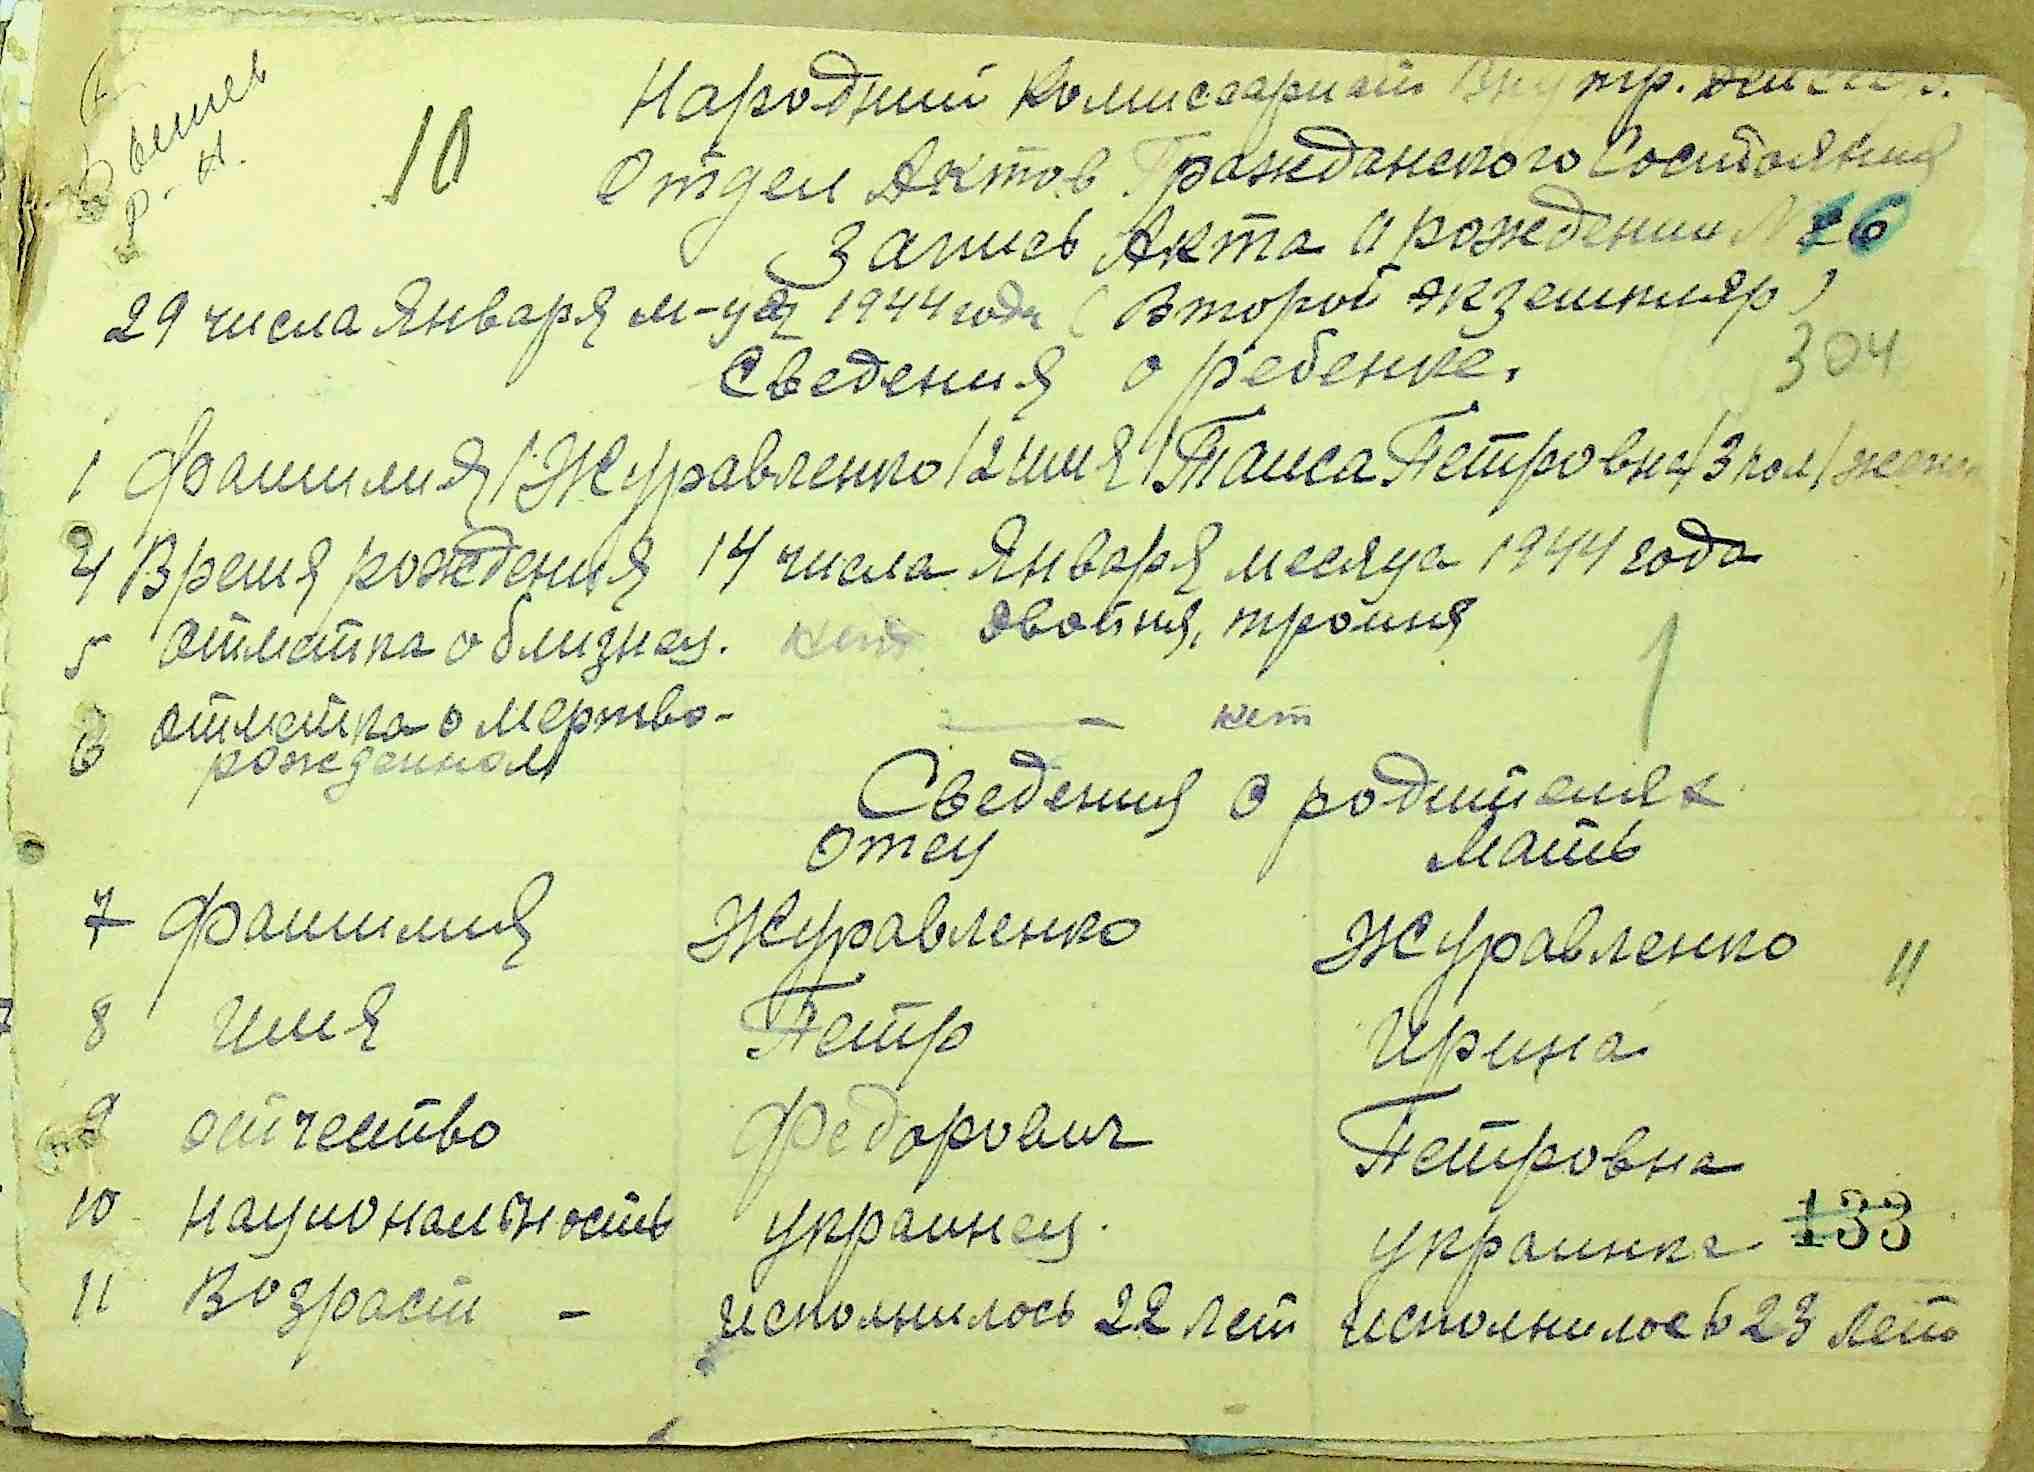 р-н.
10
Народный Комиссариат Внутр. дел
Отдел Актов Гражданского Состояния
Запись Акта о рождении № 16
29 числа Января м-ца 1944 года (Второй экземпляр)
304
Сведения о ребенке.
1 Фамилия / Журавленко / 2 имя / Таиса Петровна / 3 пол / женс
4 Время рождения 14 числа Января месяца 1944 года
5 отметка о близнец. нет двойня, тройня
1
6 отметка о мертво- — нет
рожденном
Сведения о родителях
отец мать
7 Фамилия Журавленко Журавленко 11
8 имя Петр Ирина
9 отчество Федорович Петровна
10 национальность украинец. украинка 133
11 Возраст – исполнилось 22 лет исполнилось 23 лет